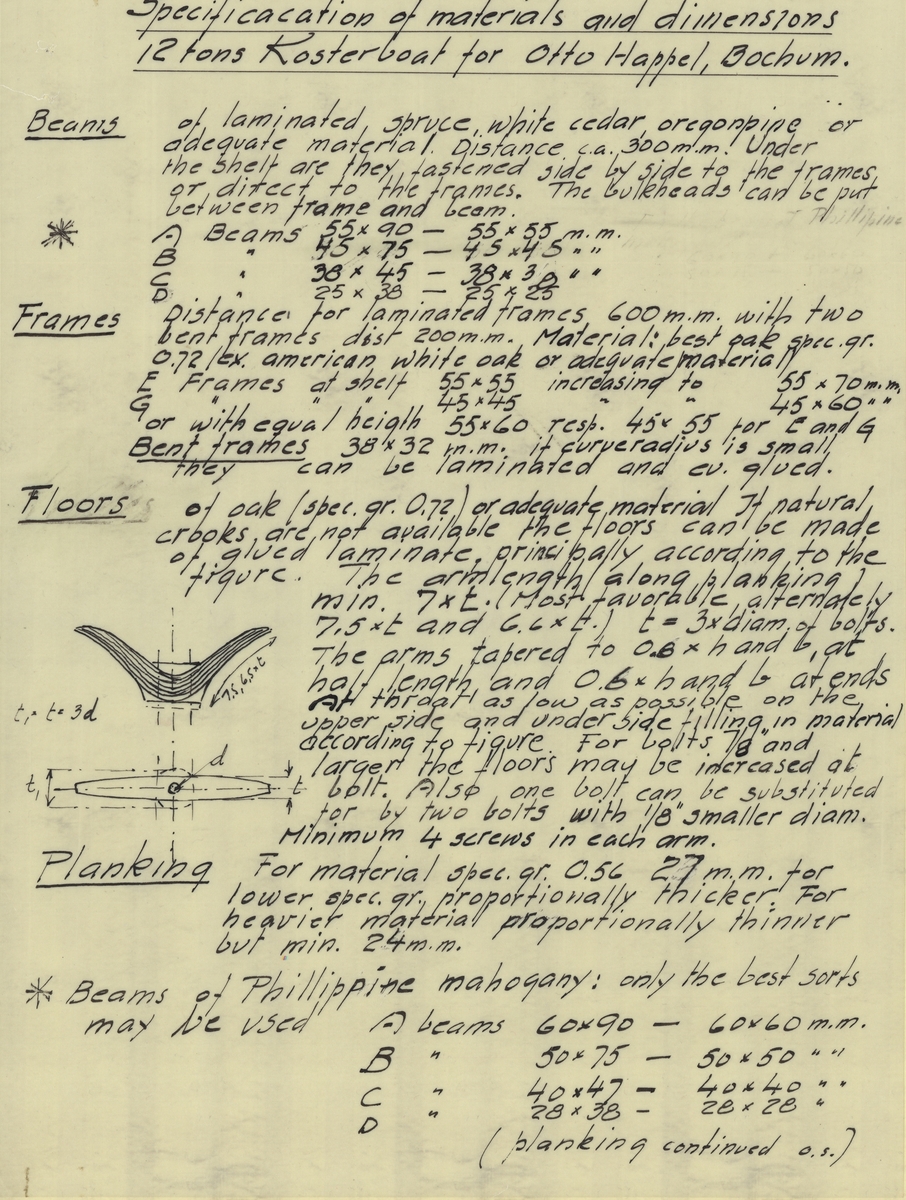 Specificacation of materials and dimensions
12 tons Kosterboat for Otto Happel, Bochum.
Beams of laminated, spruce, white cedar oregonpine or
adequate material. Distance c.a. 300 m.m. Under
the shelf are they fastened side by side to the frames,
or direct to the frames. The bulkheads can be put
between frame and beam.
* A Beams 55×90 – 55×55 m.m.
B " 45×75 – 45×45 " "
C " 38×45 – 38×38 " "
D " 25×38 – 25×25
Frames Distance for laminated frames, 600 m.m. with two
bent frames dist 200 m.m. Material: best oak spec. gr.
0.72 /ex. american white oak or adequate material/
E Frames at shelf 55×55 increasing to 55×70 m.m.
G " " " 45×45 " " 45×60 " "
or with equal heigth 55×60 resp. 45×55 for E and G
Bent frames 38×32 m.m. if curveradius is small,
they can be laminated and ev. glued.
Floors of oak (spec. gr. 0.72) or adequate material If natural
crooks, are not available the floors can be made
of glued laminate, principally according to the
figure. The armlength (along planking)
min. 7×t. (Most favorable, alternately
7.5×t and 6.6×t.) t = 3×diam. of bolts.
The arms tapered to 0.8×h and b, at
half length and 0.6×h and b at ends
At throat as low as possible on the
upper side and under side filling in material
according to figure. For bolts 7/8" and
larger the floors may be increased at
bolt. Also one bolt can be substituted
for by two bolts with 1/8" smaller diam.
Minimum 4 screws in each arm.
7.5, 6.5×t
t₁ = t = 3d
d
t₁
t
Planking For material spec. gr. 0.56 27 m.m. for
lower spec. gr., proportionally thicker. For
heavier material proportionally thinner
but min. 24 m.m.
* Beams of Phillippine mahogany: only the best sorts
may be used A beams 60×90 – 60×60 m.m.
B " 50×75 – 50×50 " "
C " 40×47 – 40×40 " "
D " 28×38 – 28×28 "
(planking continued o.s.)